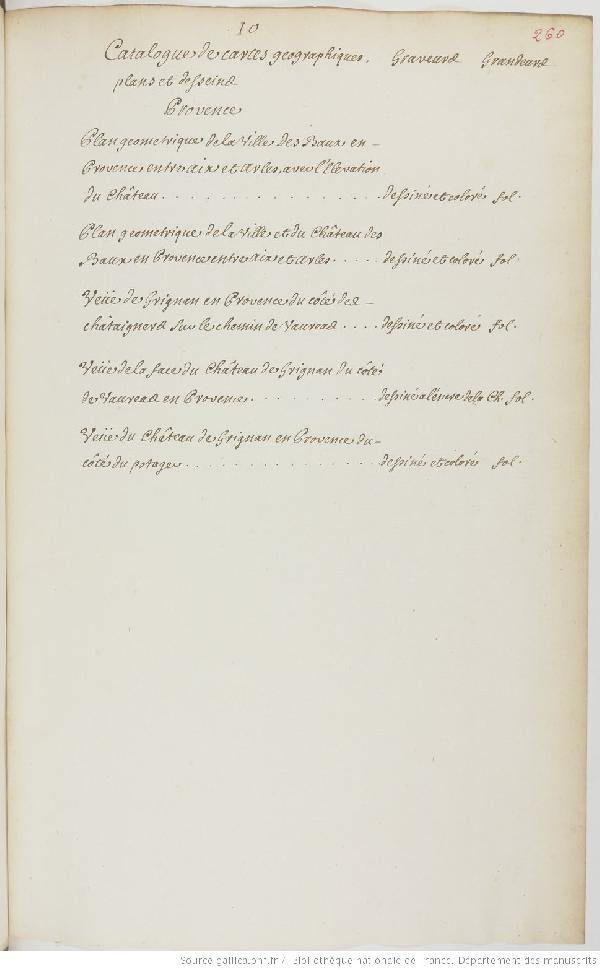 10
260
Catalogue de cartes geographiques, Graveurs Grandeurs
plans et desseins
Provence
Plan geometrique de la Ville des Baux en –
Provence entre aix et arles, avec l'Elevation
du Château . . . . . . . . . . . . dessiné et coloré fol.
Plan geometrique de la Ville et du Château des
Baux en Provence entre aix et arles . . . . . dessiné et coloré fol.
Veüe de Grignan en Provence du côté des –
châtaigners sur le chemin de Vaureas . . . . dessiné et coloré fol.
Veüe de la face du Château de Grignan du côté
de Vaureas en Provence . . . . . . . . dessiné a l'encre de la Ch. fol.
Veüe du Château de Grignan en Provence du –
côté du potager . . . . . . . . . . . . dessiné et coloré fol.
Source gallica.bnf.fr / Bibliothèque nationale de France. Département des manuscrits